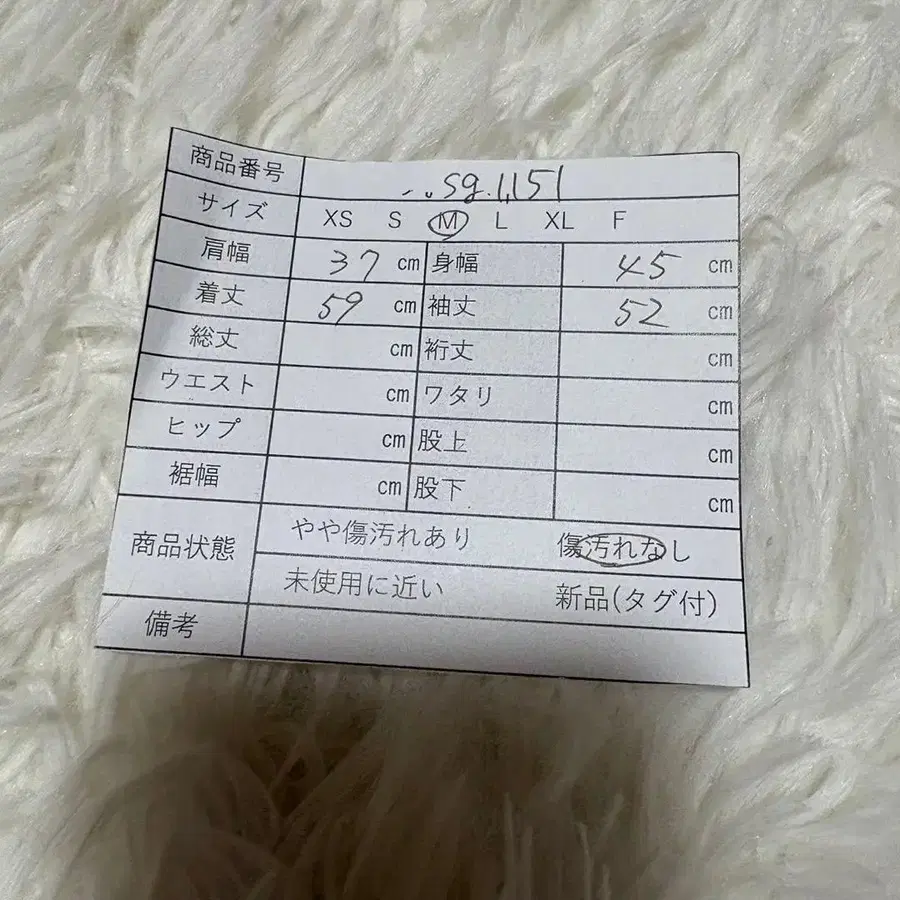 商品番号 sg.1,151
サイズ XS S M L XL F
肩幅 37 cm 身幅 45 cm
着丈 59 cm 袖丈 52 cm
総丈 cm 裄丈 cm
ウエスト cm ワタリ cm
ヒップ cm 股上 cm
裾幅 cm 股下 cm
商品状態 やや傷汚れあり 傷汚れなし
未使用に近い 新品(タグ付)
備考